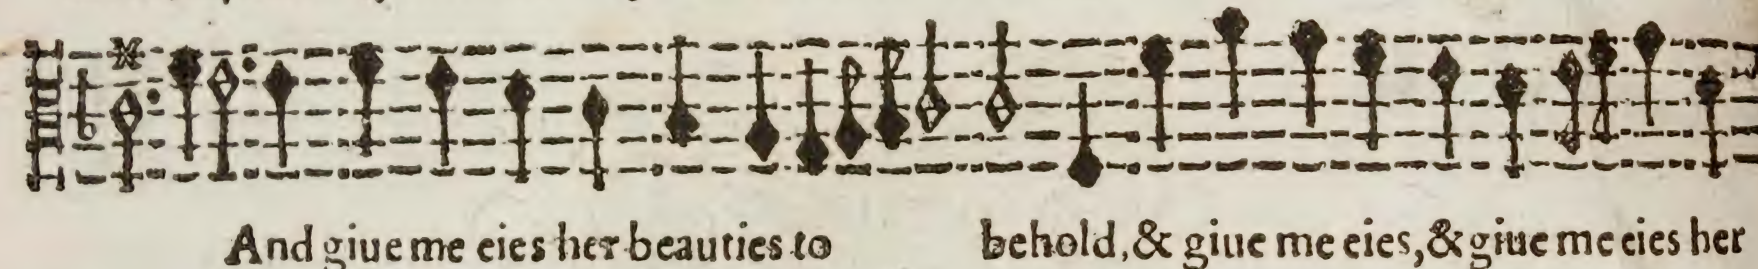 And giue me eies her beauties to behold, & giue me eies, & giue me eies her